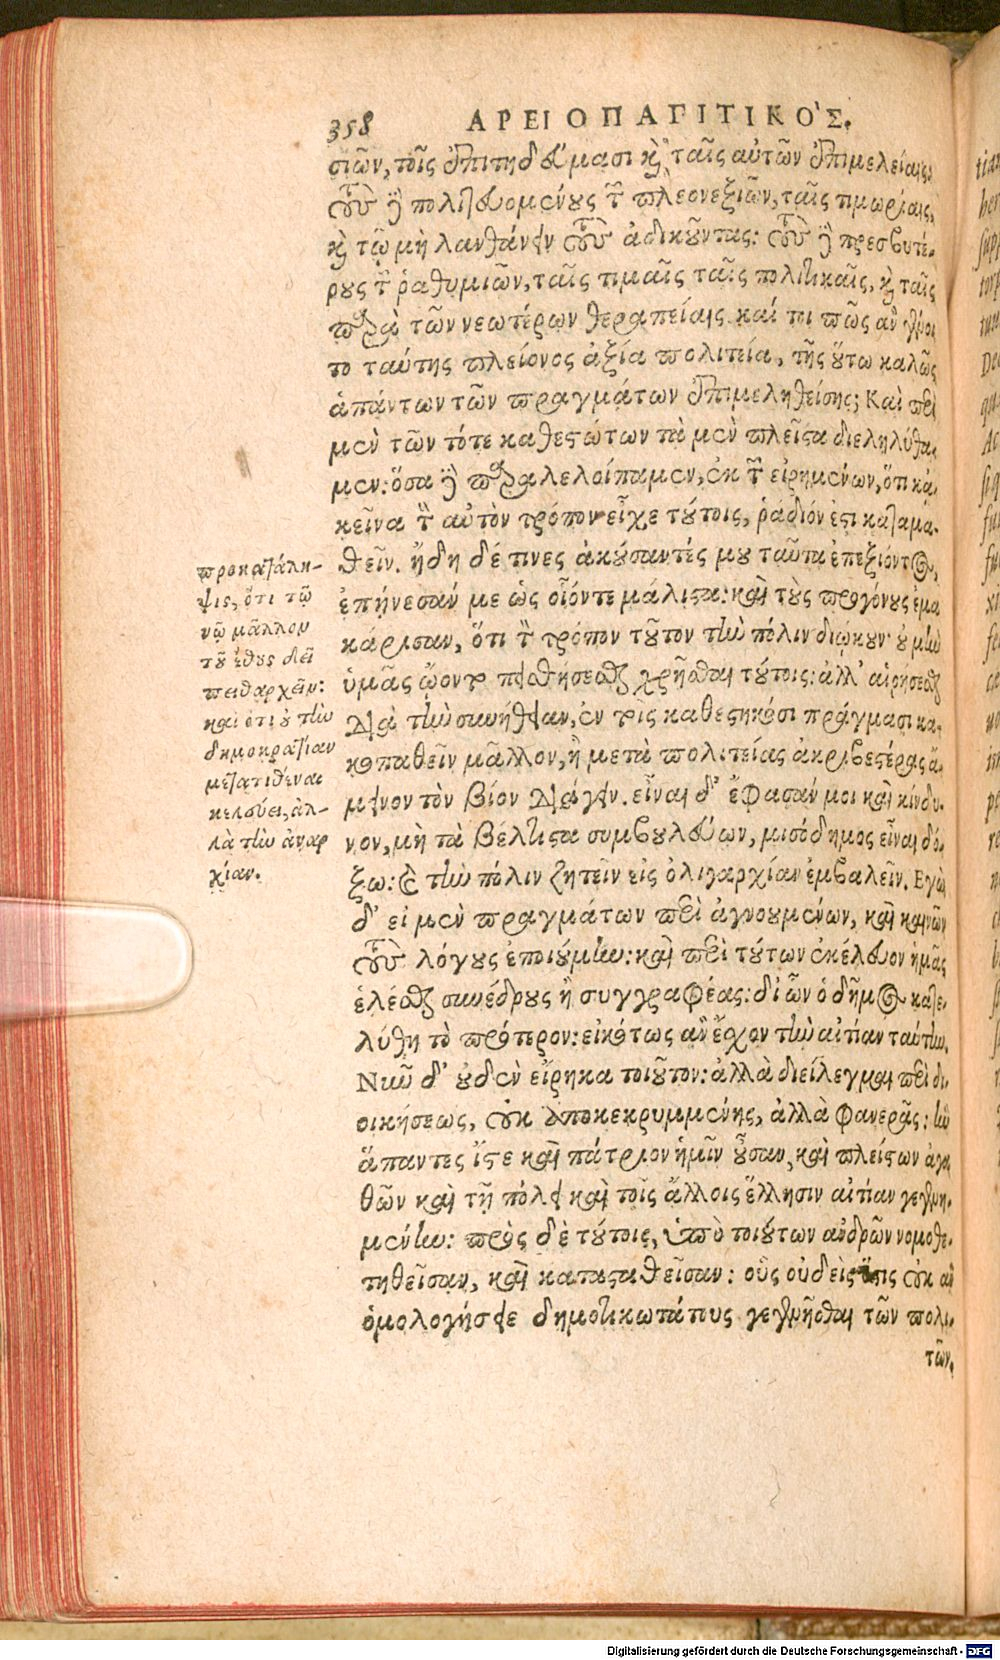 358 ΑΡΕΙΟΠΑΓΙΤΙΚΟΣ.
σιῶν, τοῖς ἐπιτηδεύμασι καὶ ταῖς αὐτῶν ἐπιμελείαις·
τοὺς δὲ πολιτευομένους τῶν πλεονεξιῶν, ταῖς τιμωρίαις,
καὶ τῷ μὴ λανθάνειν τοὺς ἀδικοῦντας: τοὺς δὲ πρεσβυτέ-
ρους τῶν ῥαθυμιῶν, ταῖς τιμαῖς ταῖς πολιτικαῖς, καὶ ταῖς
παρὰ τῶν νεωτέρων θεραπείαις. καί τοι πῶς ἂν γένοι
το ταύτης πλείονος ἀξία πολιτεία, τῆς οὕτω καλῶς
ἁπάντων τῶν πραγμάτων ἐπιμεληθείσης; Καὶ περὶ
μὲν τῶν τότε καθεστώτων τὰ μὲν πλεῖστα διεληλύθα-
μεν: ὅσα δὲ παραλελοίπαμεν, ἐκ τῶν εἰρημένων, ὅτι κἀ-
κεῖνα τὸν αὐτὸν τρόπον εἶχε τούτοις, ῥᾴδιόν ἐστι καταμα-
θεῖν. ἤδη δέ τινες ἀκούσαντές μου ταῦτα ἐπεξιόντος,
ἐπῄνεσάν με ὡς οἷόντε μάλιστα: καὶ τοὺς προγόνους ἐμα
κάρισαν, ὅτι τὸν τρόπον τοῦτον τὴν πόλιν διῴκουν· οὐ μὴν
ὑμᾶς ᾤοντο πεισθήσεσθαι χρῆσθαι τούτοις: ἀλλ' αἱρήσεσθαι
διὰ τὴν συνήθειαν, ἐν τοῖς καθεστηκόσι πράγμασι κα-
κοπαθεῖν μᾶλλον, ἢ μετὰ πολιτείας ἀκριβεστέρας ἄ-
μεινον τὸν βίον διάγειν. εἶναι δ' ἔφασάν μοι καὶ κίνδυ-
νον, μὴ τὰ βέλτιστα συμβουλεύων, μισόδημος εἶναι δό-
ξω: καὶ τὴν πόλιν ζητεῖν εἰς ὀλιγαρχίαν ἐμβαλεῖν. Εγὼ
δ' εἰ μὲν πραγμάτων περὶ ἀγνοουμένων, καὶ καινῶν
τοὺς λόγους ἐποιούμην: καὶ περὶ τούτων ἐκέλευον ἡμᾶς
ἑλέσθαι συνέδρους ἢ συγγραφέας: δι' ὧν ὁ δῆμος κατε-
λύθη τὸ πρότερον: εἰκότως ἂν ἔσχον τὴν αἰτίαν ταύτην.
Νῦν δ' οὐδὲν εἴρηκα τοιοῦτον: ἀλλὰ διείλεγμαι περὶ δι-
οικήσεως, οὐκ ἀποκεκρυμμένης, ἀλλὰ φανερᾶς: ἣν
ἅπαντες ἴστε καὶ πάτριον ἡμῖν οὖσαν, καὶ πλείστων ἀγα
θῶν καὶ τῇ πόλει καὶ τοῖς ἄλλοις ἕλλησιν αἰτίαν γεγενη-
μένην: πρὸς δὲ τούτοις, ὑπὸ τοιούτων ἀνδρῶν νομοθε-
τηθεῖσαν, καὶ κατασταθεῖσαν: οὓς οὐδεὶς ὅστις οὐκ ἂν
ὁμολογήσειε δημοτικωτάτους γεγενῆσθαι τῶν πολι-
τῶν,
προκατάλη-
ψις, ὅτι τῷ
νῷ μᾶλλον
τοῦ ἔθους δεῖ
πειθαρχεῖν:
καὶ ὅτι οὐ τὴν
δημοκρατίαν
μετατιθέναι
κελεύει, ἀλ-
λὰ τὴν ἀναρ
χίαν.
Digitalisierung gefördert durch die Deutsche Forschungsgemeinschaft - DFG